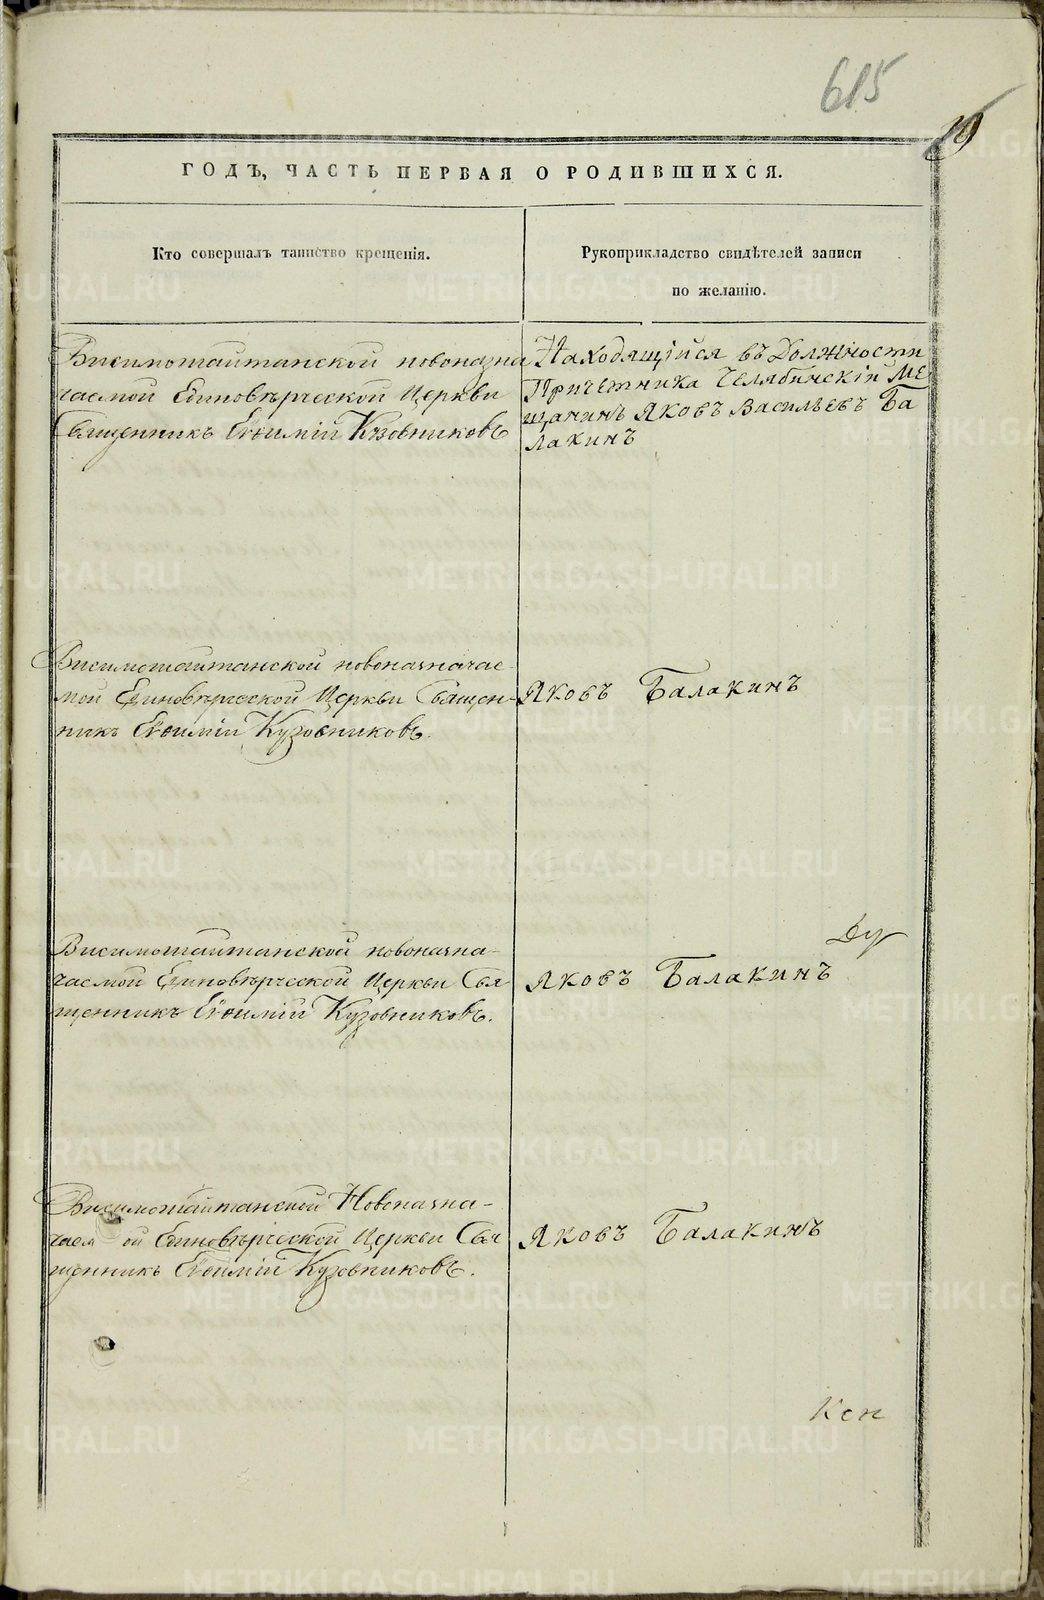 615
19
ГОДЪ, ЧАСТЬ ПЕРВАЯ О РОДИВШИХСЯ.
Кто совершалъ таинство крещенія.
Рукоприкладство свидѣтелей записи
по желанію.
Висимошайтанской новоназна
чаемой Единовѣрческой Церкви
Священникъ Евѳимій Кузовниковъ
Находящійся въ Должности
Причетника Челябинскій Ме
щанинъ Яковъ Васильевъ Ба
лакинъ
Висимошайтанской новоназначае-
мой Единовѣрческой Церкви Священ-
никъ Евѳимій Кузовниковъ.
Яковъ Балакинъ
Висимошайтанской новоназна-
чаемой Единовѣрческой Церкви Свя
щенникъ Евѳимій Кузовниковъ.
Яковъ Балакинъ
Ду
Висимошайтанской Новоназна-
чаем ой Единовѣрческой Церкви Свя
щенникъ Евѳимій Кузовниковъ.
Яковъ Балакинъ
Ксн
METRIKI.GASO-URAL.RU